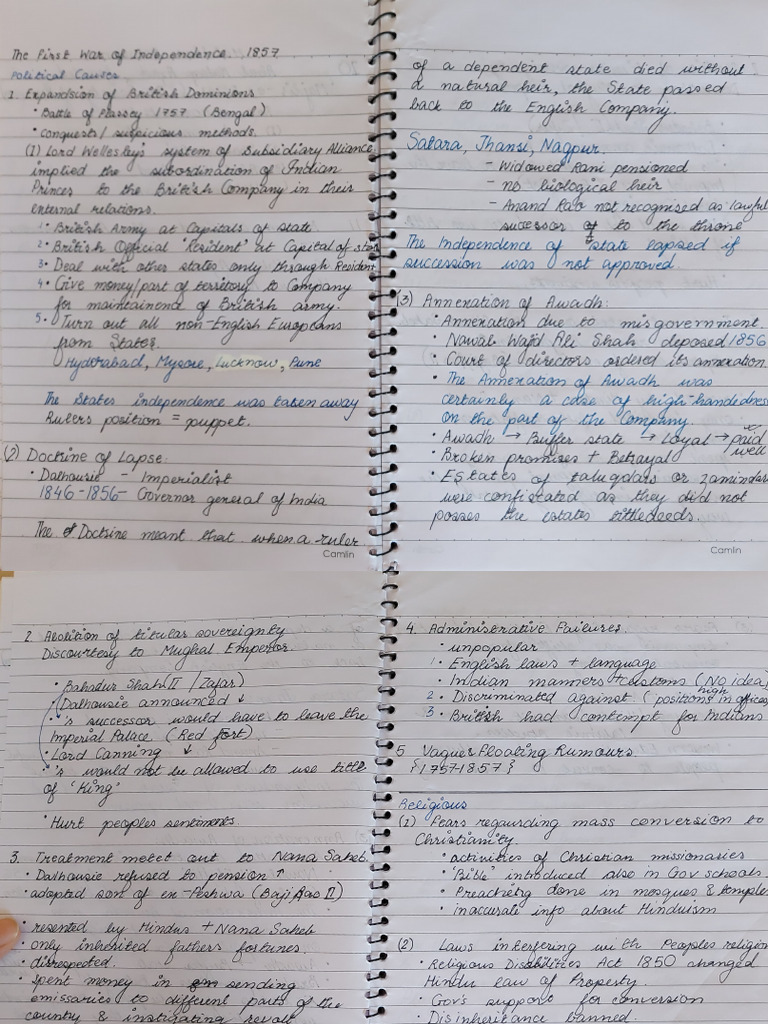 The First War of Independence. 1857
Political Causes
1. Expandsion of British Dominions
• Battle of Plassey 1757 (Bengal)
• conquests/ suspicious methods.
(1) Lord Wellesley's system of Subsidiary Alliance
implied the subordination of Indian
Princes to the British Company in their
external relations.
1. British Army at Capitals of state
2. British Official 'Resident' at Capital of stat
3. Deal with other states only through Resident
4. Give money/part of territory to Company
for maintainence of British army.
5. Turn out all non-English Europeans
from States.
Hyderabad, Mysore, Lucknow, Pune
The States independence was taken away
Rulers position = puppet.
(2) Doctrine of Lapse:
• Dalhousie - Imperialist
1846-1856- Governor general of India
The Doctrine meant that when a ruler
Camlin
of a dependent state died without
a natural heir, the State passed
back to the English Company.
Satara, Jhansi, Nagpur.
- Widowed Rani pensioned
- no biological heir
- Anand Rao not recognised as lawful
successor to the throne
The Independence of state lapsed if
succession was not approved.
(3) Annexation of Awadh:
• Annexation due to misgovernment.
• Nawab Wajid Ali Shah deposed 1856
• Court of directors ordered its annexation.
• The Annexation of Awadh was
certainly a case of high-handedness
on the part of the Company.
• Awadh → Buffer state → Loyal → paid
well
• Broken promises + Betrayal
• Estates of talugdars or zamindar
were confiscated as they did not
posses the estates tittledeeds.
Camlin
2. Abolition of titular sovereignty
Discourtesy to Mughal Emperor.
• Bahadur Shah II / Zafar)
• Dalhousie announced ↓
• 's successor would have to leave the
Imperial Palace (Red fort)
• Lord Canning ↓
• 's would not be allowed to use title
of 'King'
• Hurt peoples sentiments.
3. Treatment meted out to Nana Saheb.
• Dalhousie refused to pension ↑
• adopted son of ex-Peshwa (Baji Rao II)
• resented by Hindus + Nana Saheb
• only inherited fathers fortunes.
• disrespected.
• spent money in sending
emissaries to different parts of the
country & instigating revolt
4. Administrative Failures.
• unpopular
1. English laws + language
• Indian manners + customs (No idea)
2. Discriminated against (high positions in offices
3. British had contempt for Indians
5 Vague Floating Rumours.
{1757-1857}
Religious
(1) Fears regaurding mass conversion to
Christianity.
• activities of Christian missionaries
• 'Bible' introduced also in Gov schools.
• Preaching done in mosques & temples
• inaccurate info about Hinduism
(2) Laws interfering with Peoples religion
• Religious Disabilities Act 1850 changed
Hindu law of Property.
• Gov's support for conversion
• Disinheritance banned.